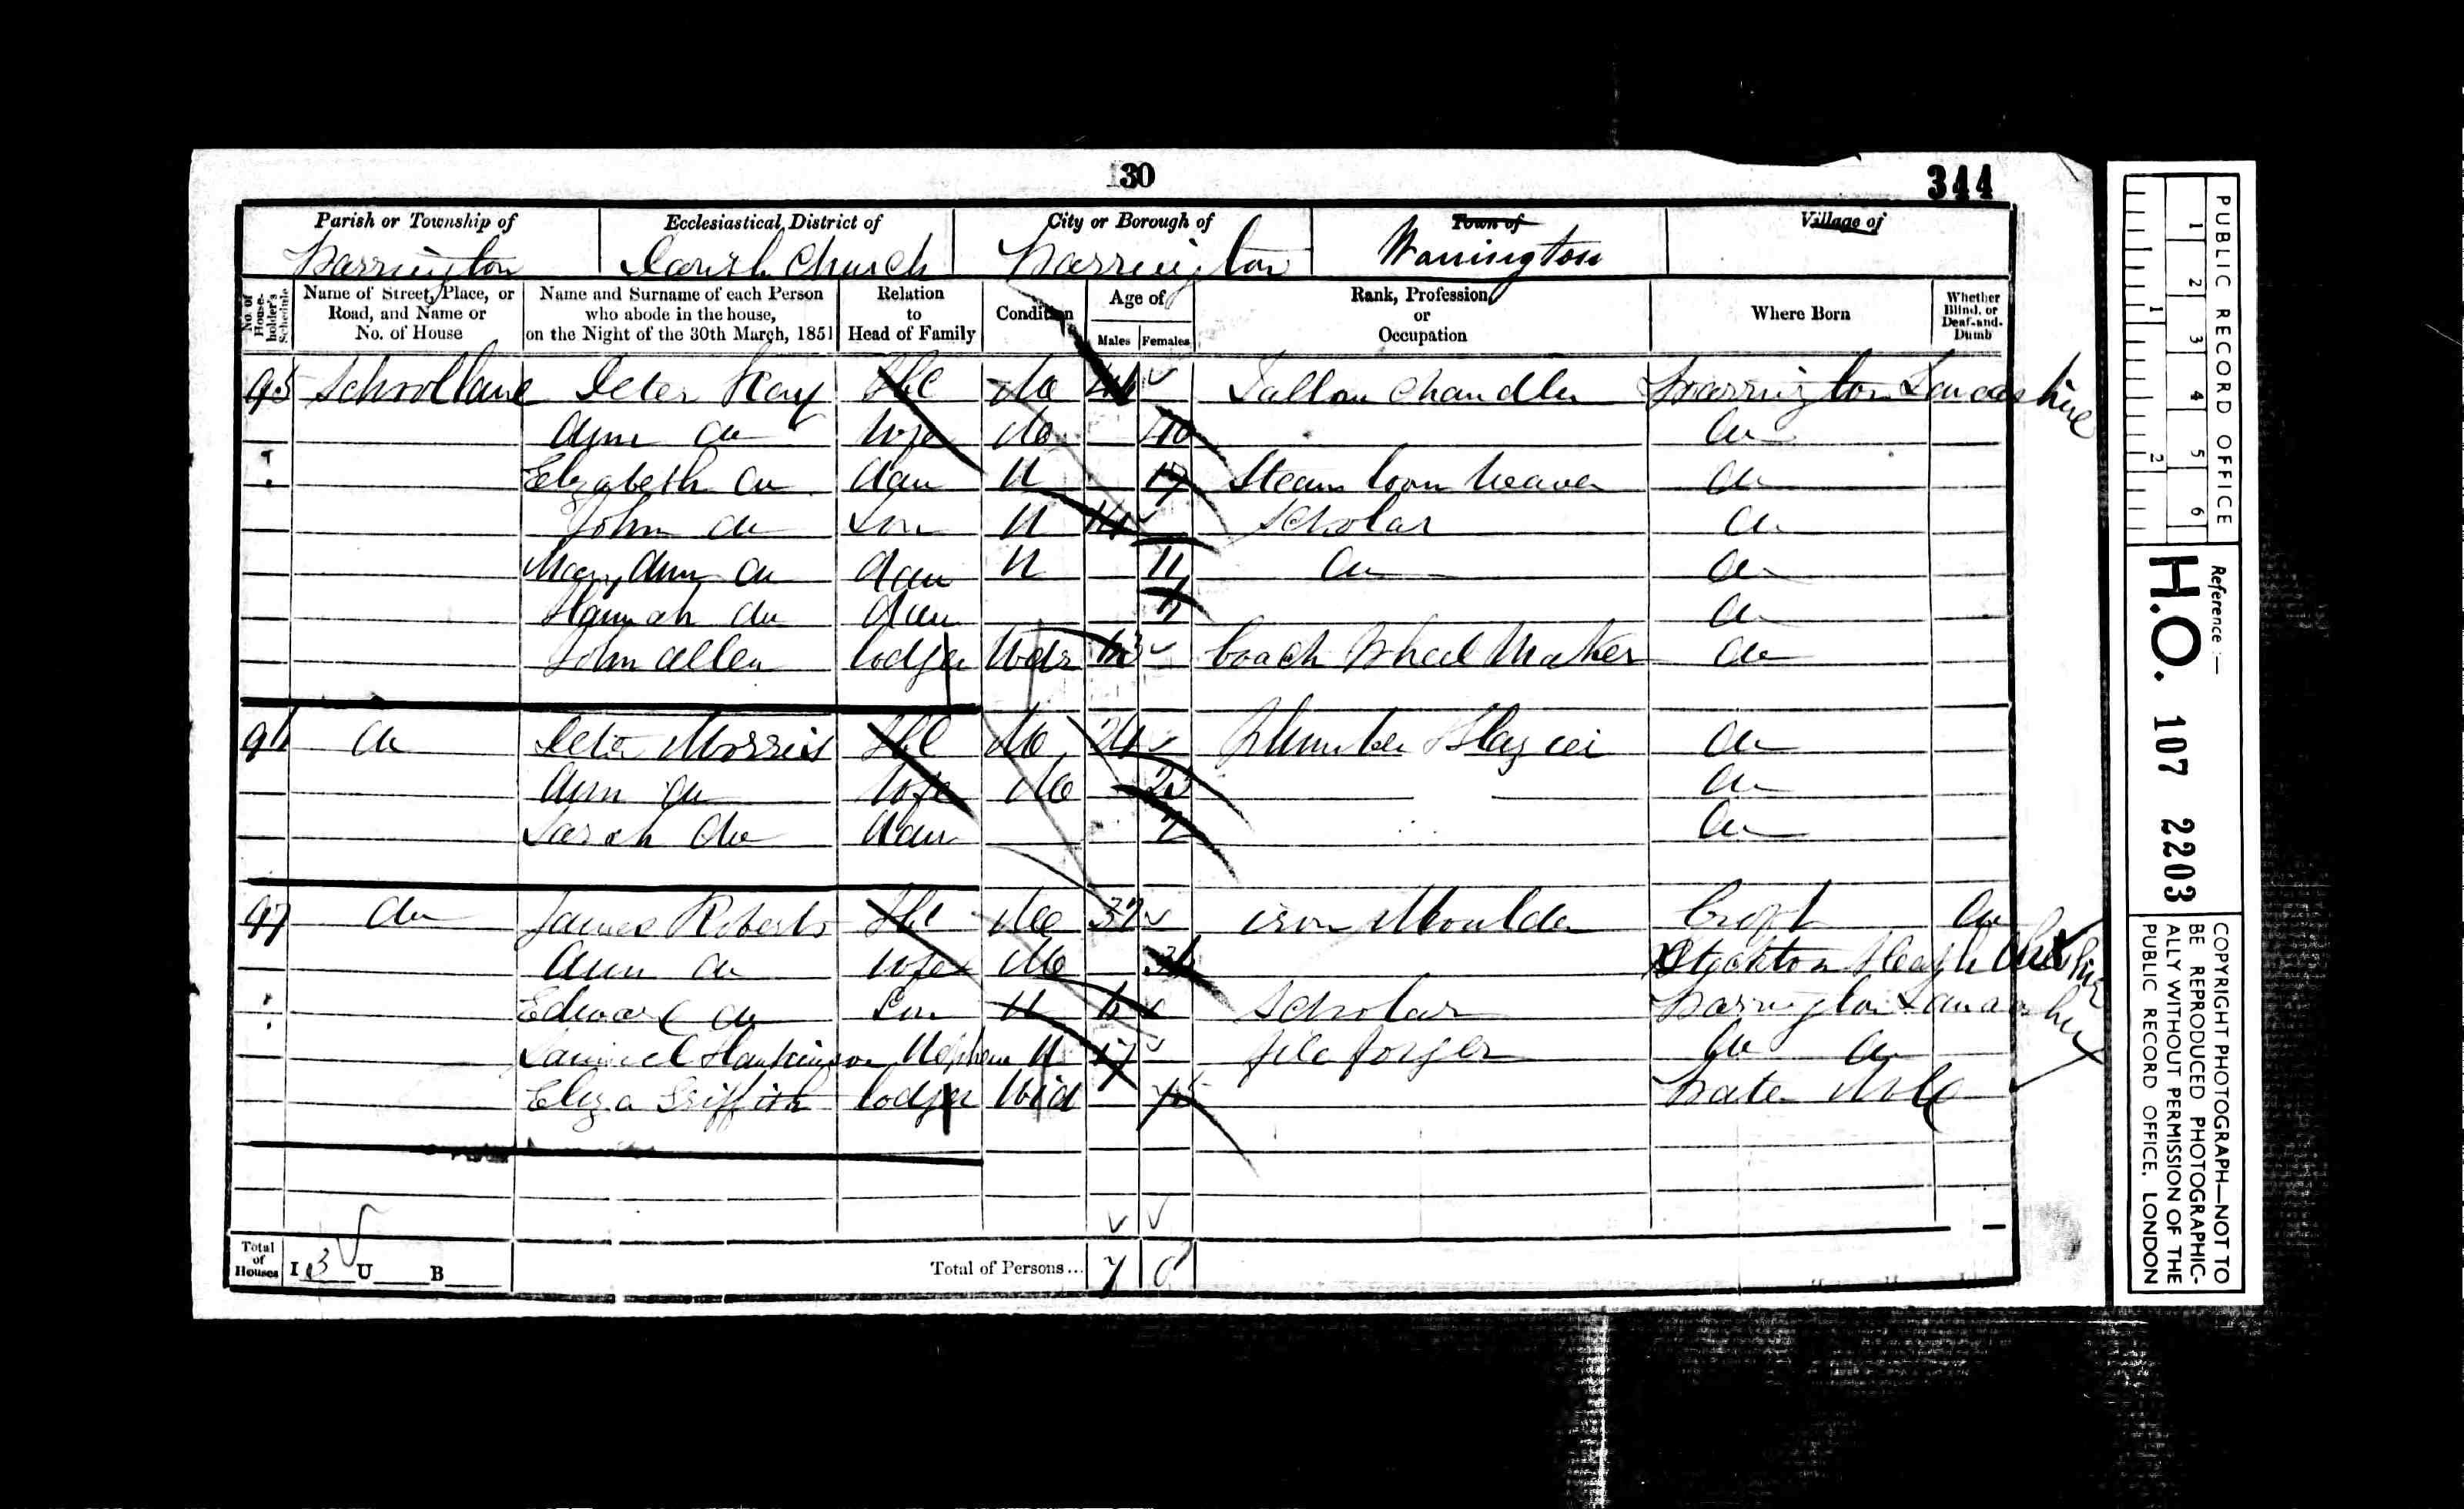 30
344
Parish or Township of Ecclesiastical District of City or Borough of Town of Village of
Warrington Parish Church Warrington Warrington
No. of House-holder's Schedule Name of Street, Place, or Road, and Name or No. of House Name and Surname of each Person who abode in the house, on the Night of the 30th March, 1851 Relation to Head of Family Condition Age of Males Females Rank, Profession, or Occupation Where Born Whether Blind, or Deaf-and-Dumb
95 School lane Peter Kay Hd Ma Tallow Chandler Warrington Lancashire
Ann do Wife Ma 40 do
Elizabeth do dau U 17 Steam loom Weaver do
John do Son U 14 Scholar do
Mary Ann do dau U 11 do do
Hannah do dau do
John Allen lodger Wdr Coach Wheel Maker do
96 do Peter Morris Hd Ma 24 Plumber Glazier do
Ann do Wife Ma 23 do
Sarah do dau do
97 do James Roberts Hd Ma 37 iron Moulder Croft do
Ann do Wife Ma Stockton Heath Cheshire
Edward do Son U Scholar Warrington Lancashire
Samuel Hankinson Nephew U 17 file forger do do
Eliza Griffith lodger Wid
Total of Houses I 3 U B Total of Persons... 7 8
PUBLIC RECORD OFFICE
1 2 3 4 5 6
1 2
Reference:—
H.O. 107 2203
COPYRIGHT PHOTOGRAPH—NOT TO BE REPRODUCED PHOTOGRAPHIC-
ALLY WITHOUT PERMISSION OF THE PUBLIC RECORD OFFICE, LONDON